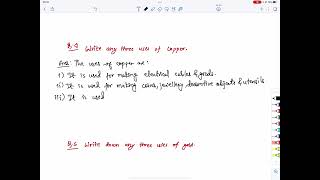 Q.4 Write any three uses of copper.
Ans: The uses of copper are:
i) It is used for making electrical cables & goods.
ii) It is used for making coins, jewellery, decorative objects & utensils
iii) It is used
Q.5 Write down any three uses of gold.